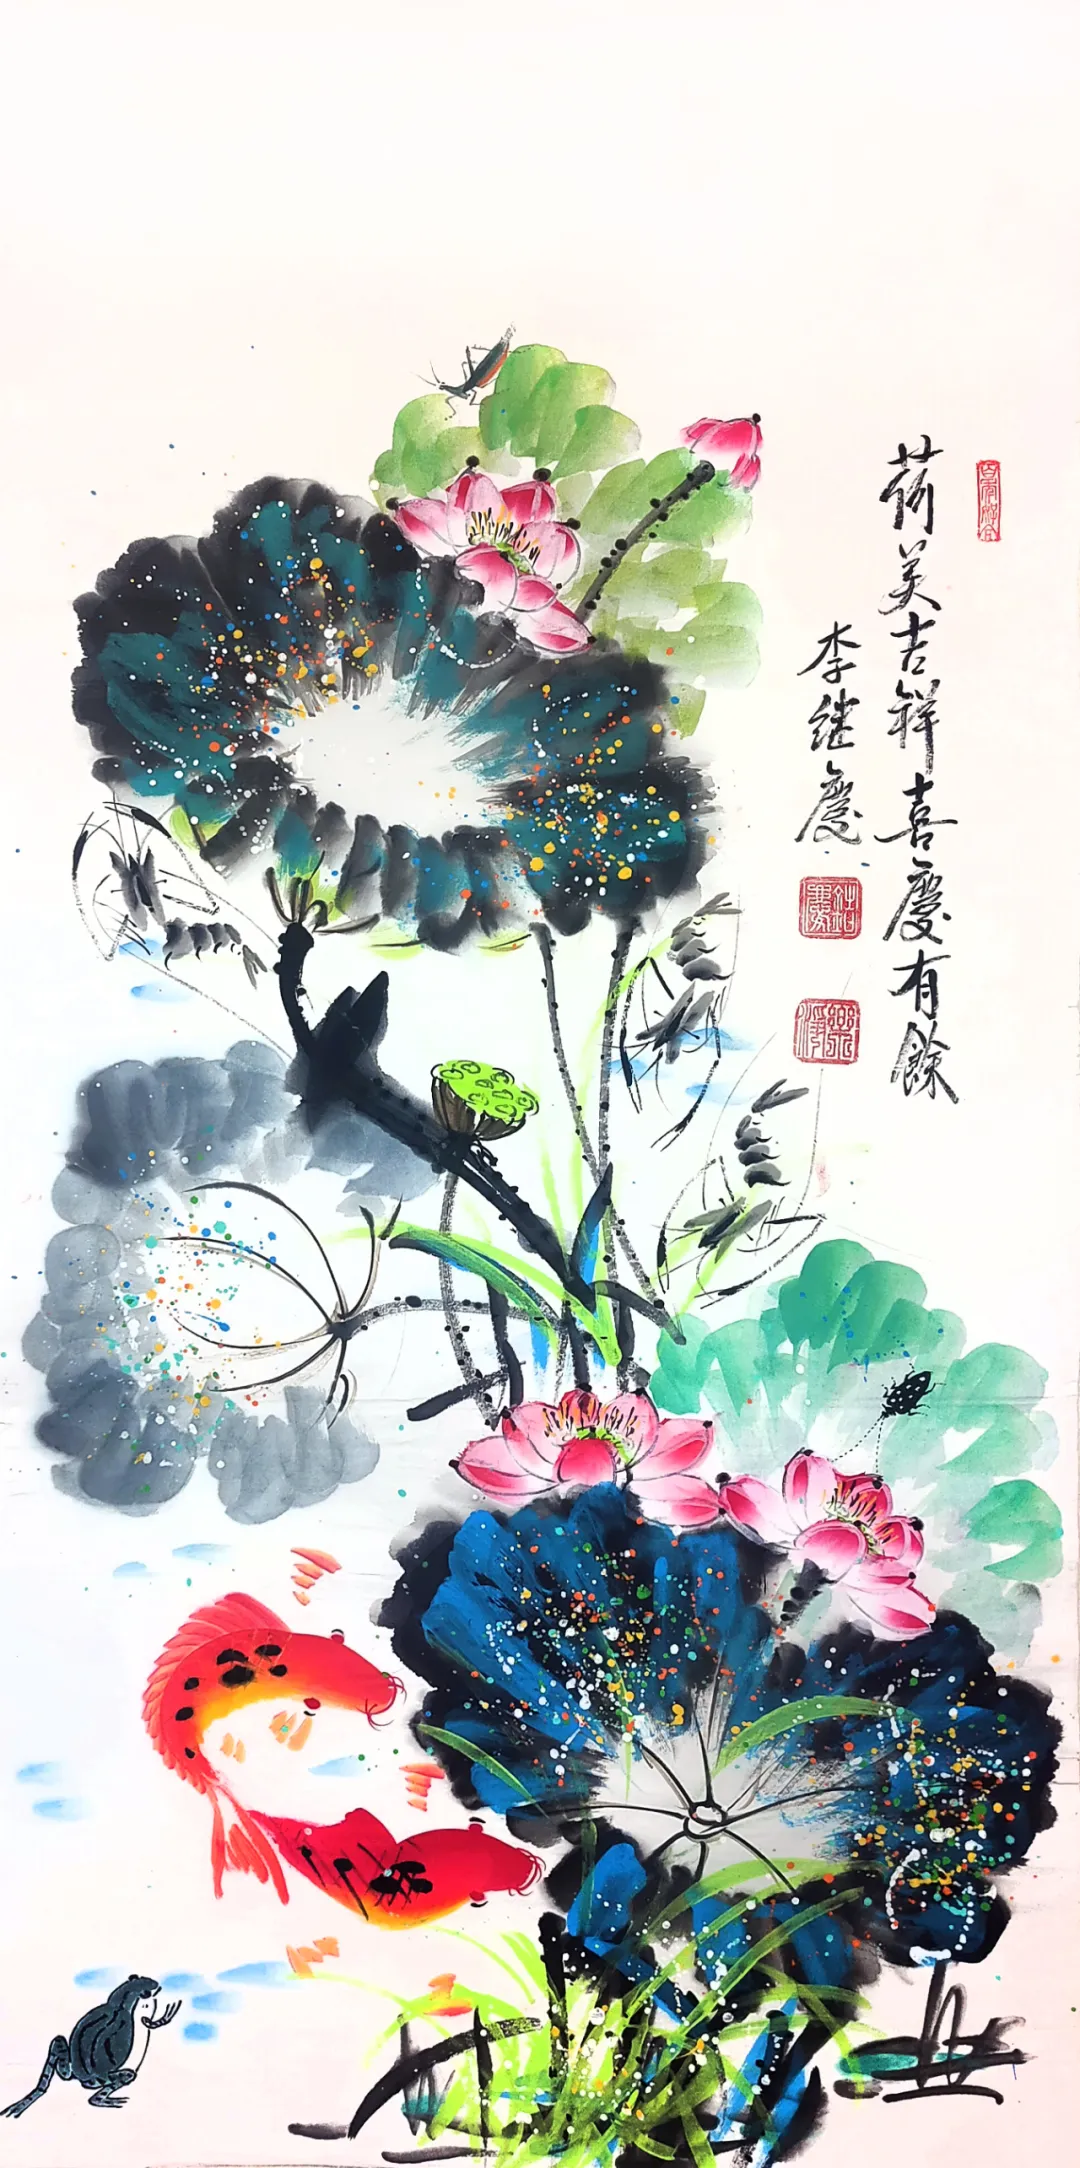 荷美吉祥喜慶有餘
李継慶